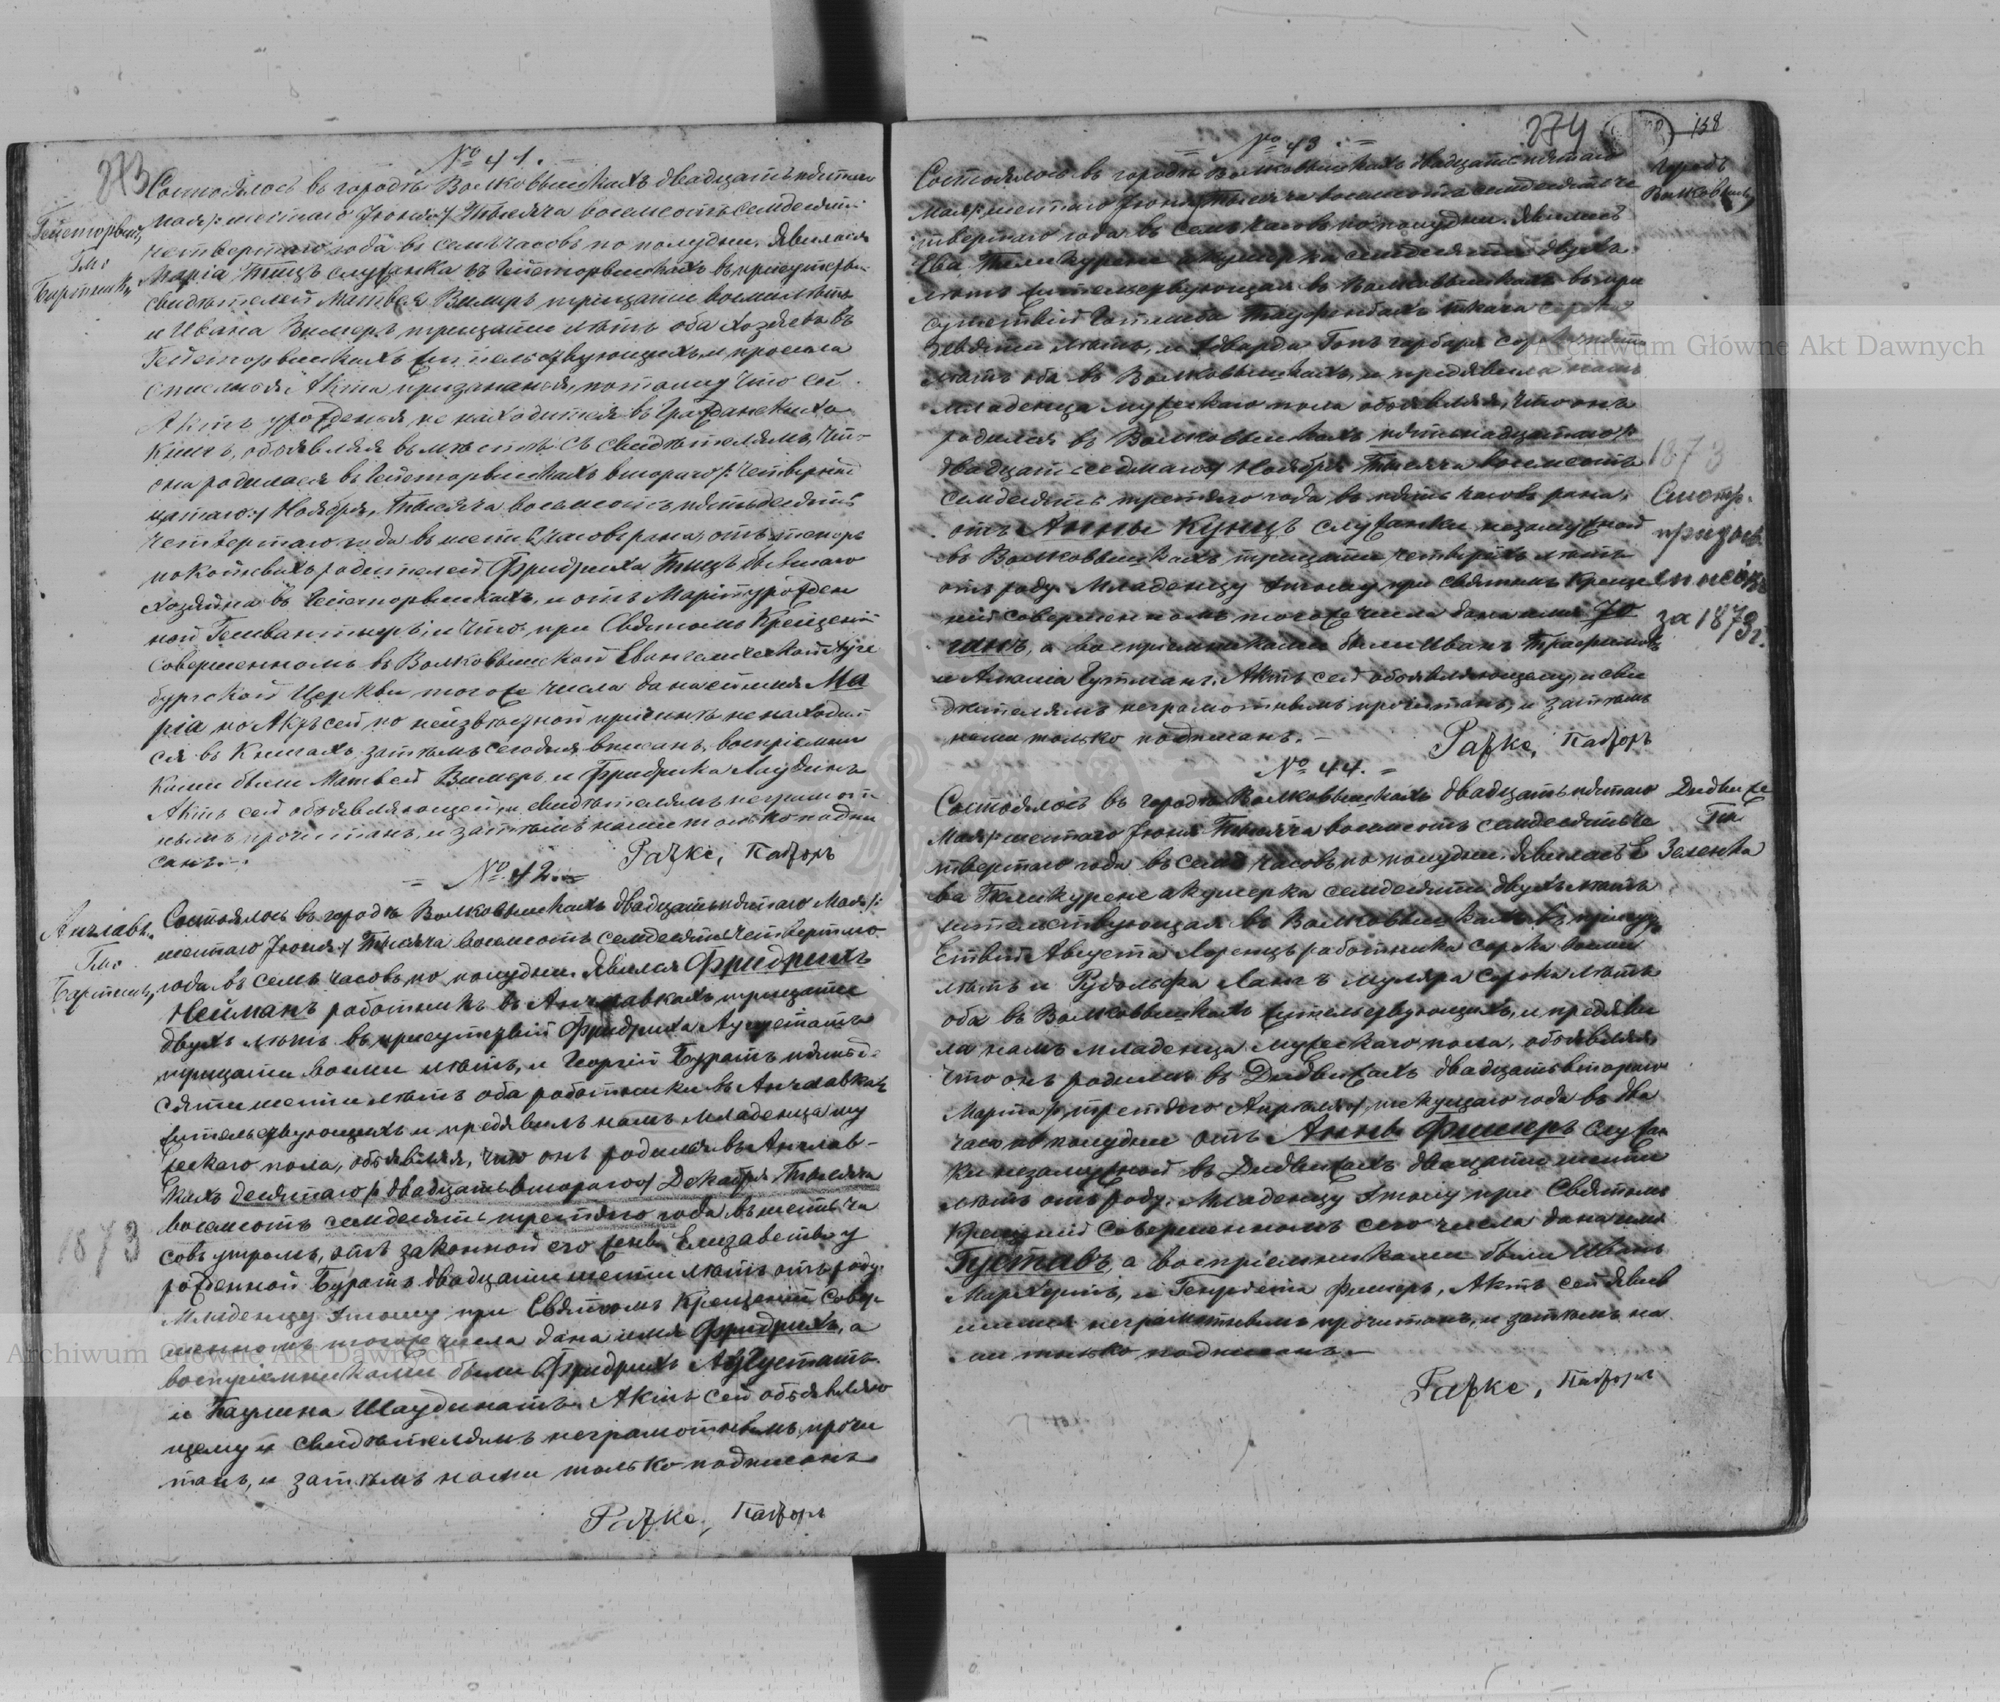 273
№ 41.
Гейсторвишки
Гми
Бартники
Состоялось въ городѣ Волковышкахъ двадцать пятаго
мая/: шестаго Іюня :/ Тысяча восемьсотъ семдесятъ
четвертаго года въ семь часовъ по полудни. Явилася
Марія Тицъ служанка въ Гейсторвишкахъ въ присутствіи
свидѣтелей Матвея Вилмеръ тридцати восьми лѣтъ
и Ивана тридцати лѣтъ оба хозяева въ
Гейсторвишкахъ жительствующихъ, и просила
Акта признанія, потому что сей
Актъ урожденья не находится въ Гражданскихъ
Книгъ, объявляя вмѣстѣ съ свидѣтелями, что
она родилася въ Гейсторвишкахъ втораго/: четырнад
цатаго :/ Ноября, Тысяча восемьсотъ пятьдесятъ
четвертаго года въ шесть часовъ рана, отъ теперь
покойныхъ родителей Фридриха Тицъ бывшаго
хозяина въ Гейсторвишкахъ, и отъ Маріи урожден
ной и что при Святомъ Крещеніи
совершенномъ въ Волковышской Евангелической Аугс
бургской Церкви тогоже числа дано ей имя Ма
рія но Актъ сей по неизвѣстной причинѣ не находит
ся въ Книгахъ затѣмъ сегодня вписанъ, воспріемни
ками были Матвей Вилмеръ и Фридрика
Актъ сей объявляющей и свидѣтелямъ неграмот
нымъ прочитанъ, и затѣмъ нами только подпи
санъ.
Рацке, Пасторъ
№ 42.
Анчлавъ.
Гми
Бартники
Состоялось въ городѣ Волковышкахъ двадцать пятаго Мая/:
шестаго Іюня :/ Тысяча восемьсотъ семдесятъ четвертаго
года въ семь часовъ по полудни. Явился Фридрихъ
Нейманъ работникъ въ Анчлавкахъ тридцати
двухъ лѣтъ въ присутствіи Фридриха Аугустатъ
тридцати восьми лѣтъ, и Георгій Буратъ пятьде
сяти шести лѣтъ оба работники въ Анчлавкахъ
жительствующихъ и предявилъ намъ младенца му
жескаго пола, объявляя, что онъ родился въ Анчлав-
кахъ десятаго/: двадцать втораго :/ Декабря Тысяча
восемсотъ семдесятъ третяго года въ шесть ча
совъ утромъ, отъ законной его жены Елизаветы у
рожденной Буратъ двадцати шести лѣтъ отъ роду.
1873
Младенцу этому при Святомъ Крещеніи совер-
шенномъ тогоже числа дано имя Фридрихъ, а
воспріемниками были Фридрихъ Аугустатъ
и Паулина Шаудинатъ. Актъ сей объявляю
щему и свидѣтелямъ неграмотнымъ прочи
танъ, и затѣмъ нами только подписанъ
Рацке, Пасторъ
274 158
№ 43.
Городъ
Волковышки
Состоялось въ городѣ Волковышкахъ двадцать пятаго
Мая/: шестаго Іюня :/ Тысяча восемьсотъ семдесятъ че
твертаго года въ семь часовъ по полудни. Явилась
Ева акушерка семдесяти двухъ
лѣтъ жительствующая въ Волковышкахъ въ при
сутствіи Готлиба ткача сорока
девяти лѣтъ, и Эдварда Гопъ гарбаря сорока пяти
лѣтъ оба въ Волковышкахъ, и предявила намъ
младенца мужескаго пола объявляя, что онъ
родился въ Волковышкахъ пятнадцатаго/:
двадцать седмаго :/ Ноября Тысяча восемсотъ
семдесятъ третяго года въ пять часовъ рана,
отъ Анны Кунцъ служанки незамужной
въ Волковышкахъ тридцати четырехъ лѣтъ
отъ роду. Младенцу этому при святомъ Креще
ніи совершенномъ тогоже числа дано имя Іо
ганъ, а воспріемниками были Иванъ
и Амалія Гутманъ. Актъ сей объявляющему, и сви
дѣтелямъ неграмотнымъ прочитанъ, и затѣмъ
нами только подписанъ. -
1873
Смотр.
за 1873 г.
Рацке, Пасторъ
№ 44.
Дидвиже
Гм
Зеленка
Состоялось въ городѣ Волковышкахъ двадцать пятаго
Мая/: шестаго Іюня Тысяча восемсотъ семдесятъ че
твертаго года въ семь часовъ по полудни. Явилась Е
ва акушерка семдесяти двухъ лѣтъ
жительствующая въ Волковышкахъ въ присут
ствіи Августа Лоренцъ работника сорока восьми
лѣтъ и Рудольфа Лангъ муляра сорока лѣтъ
оба въ Волковышкахъ жительствующихъ, и предяви
ла намъ младенца мужескаго пола, объявляя,
что онъ родился въ Дидвижахъ двадцать втораго
Марта/: третяго Апрѣля :/ текущаго года въ два
часа по полудни отъ Анны Фишеръ служан
ки незамужной въ Дидвижахъ двадцати шести
лѣтъ отъ роду. Младенцу этому при Святомъ
Крещеніи совершенномъ сего числа дано имя
Густавъ, а воспріемниками были Иванъ
и Генріета Фишеръ, Актъ сей явив
шимся неграмотнымъ прочитанъ, и затѣмъ на
ми только подписанъ. -
Рацке, Пасторъ
Archiwum Główne Akt Dawnych
Archiwum Główne Akt Dawnych